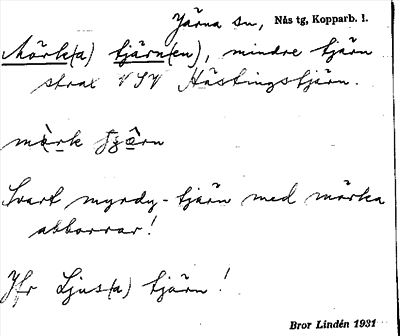 Järna sn, Nås tg, Kopparb. l.
Mörk(a) tjärn(en), mindre tjärn
strax VSV Hästingstjärn.
mörk tjärn
Svart myrdy-tjärn med mörka
abborrar!
Jfr Ljus(a) tjärn!
Bror Lindén 1931